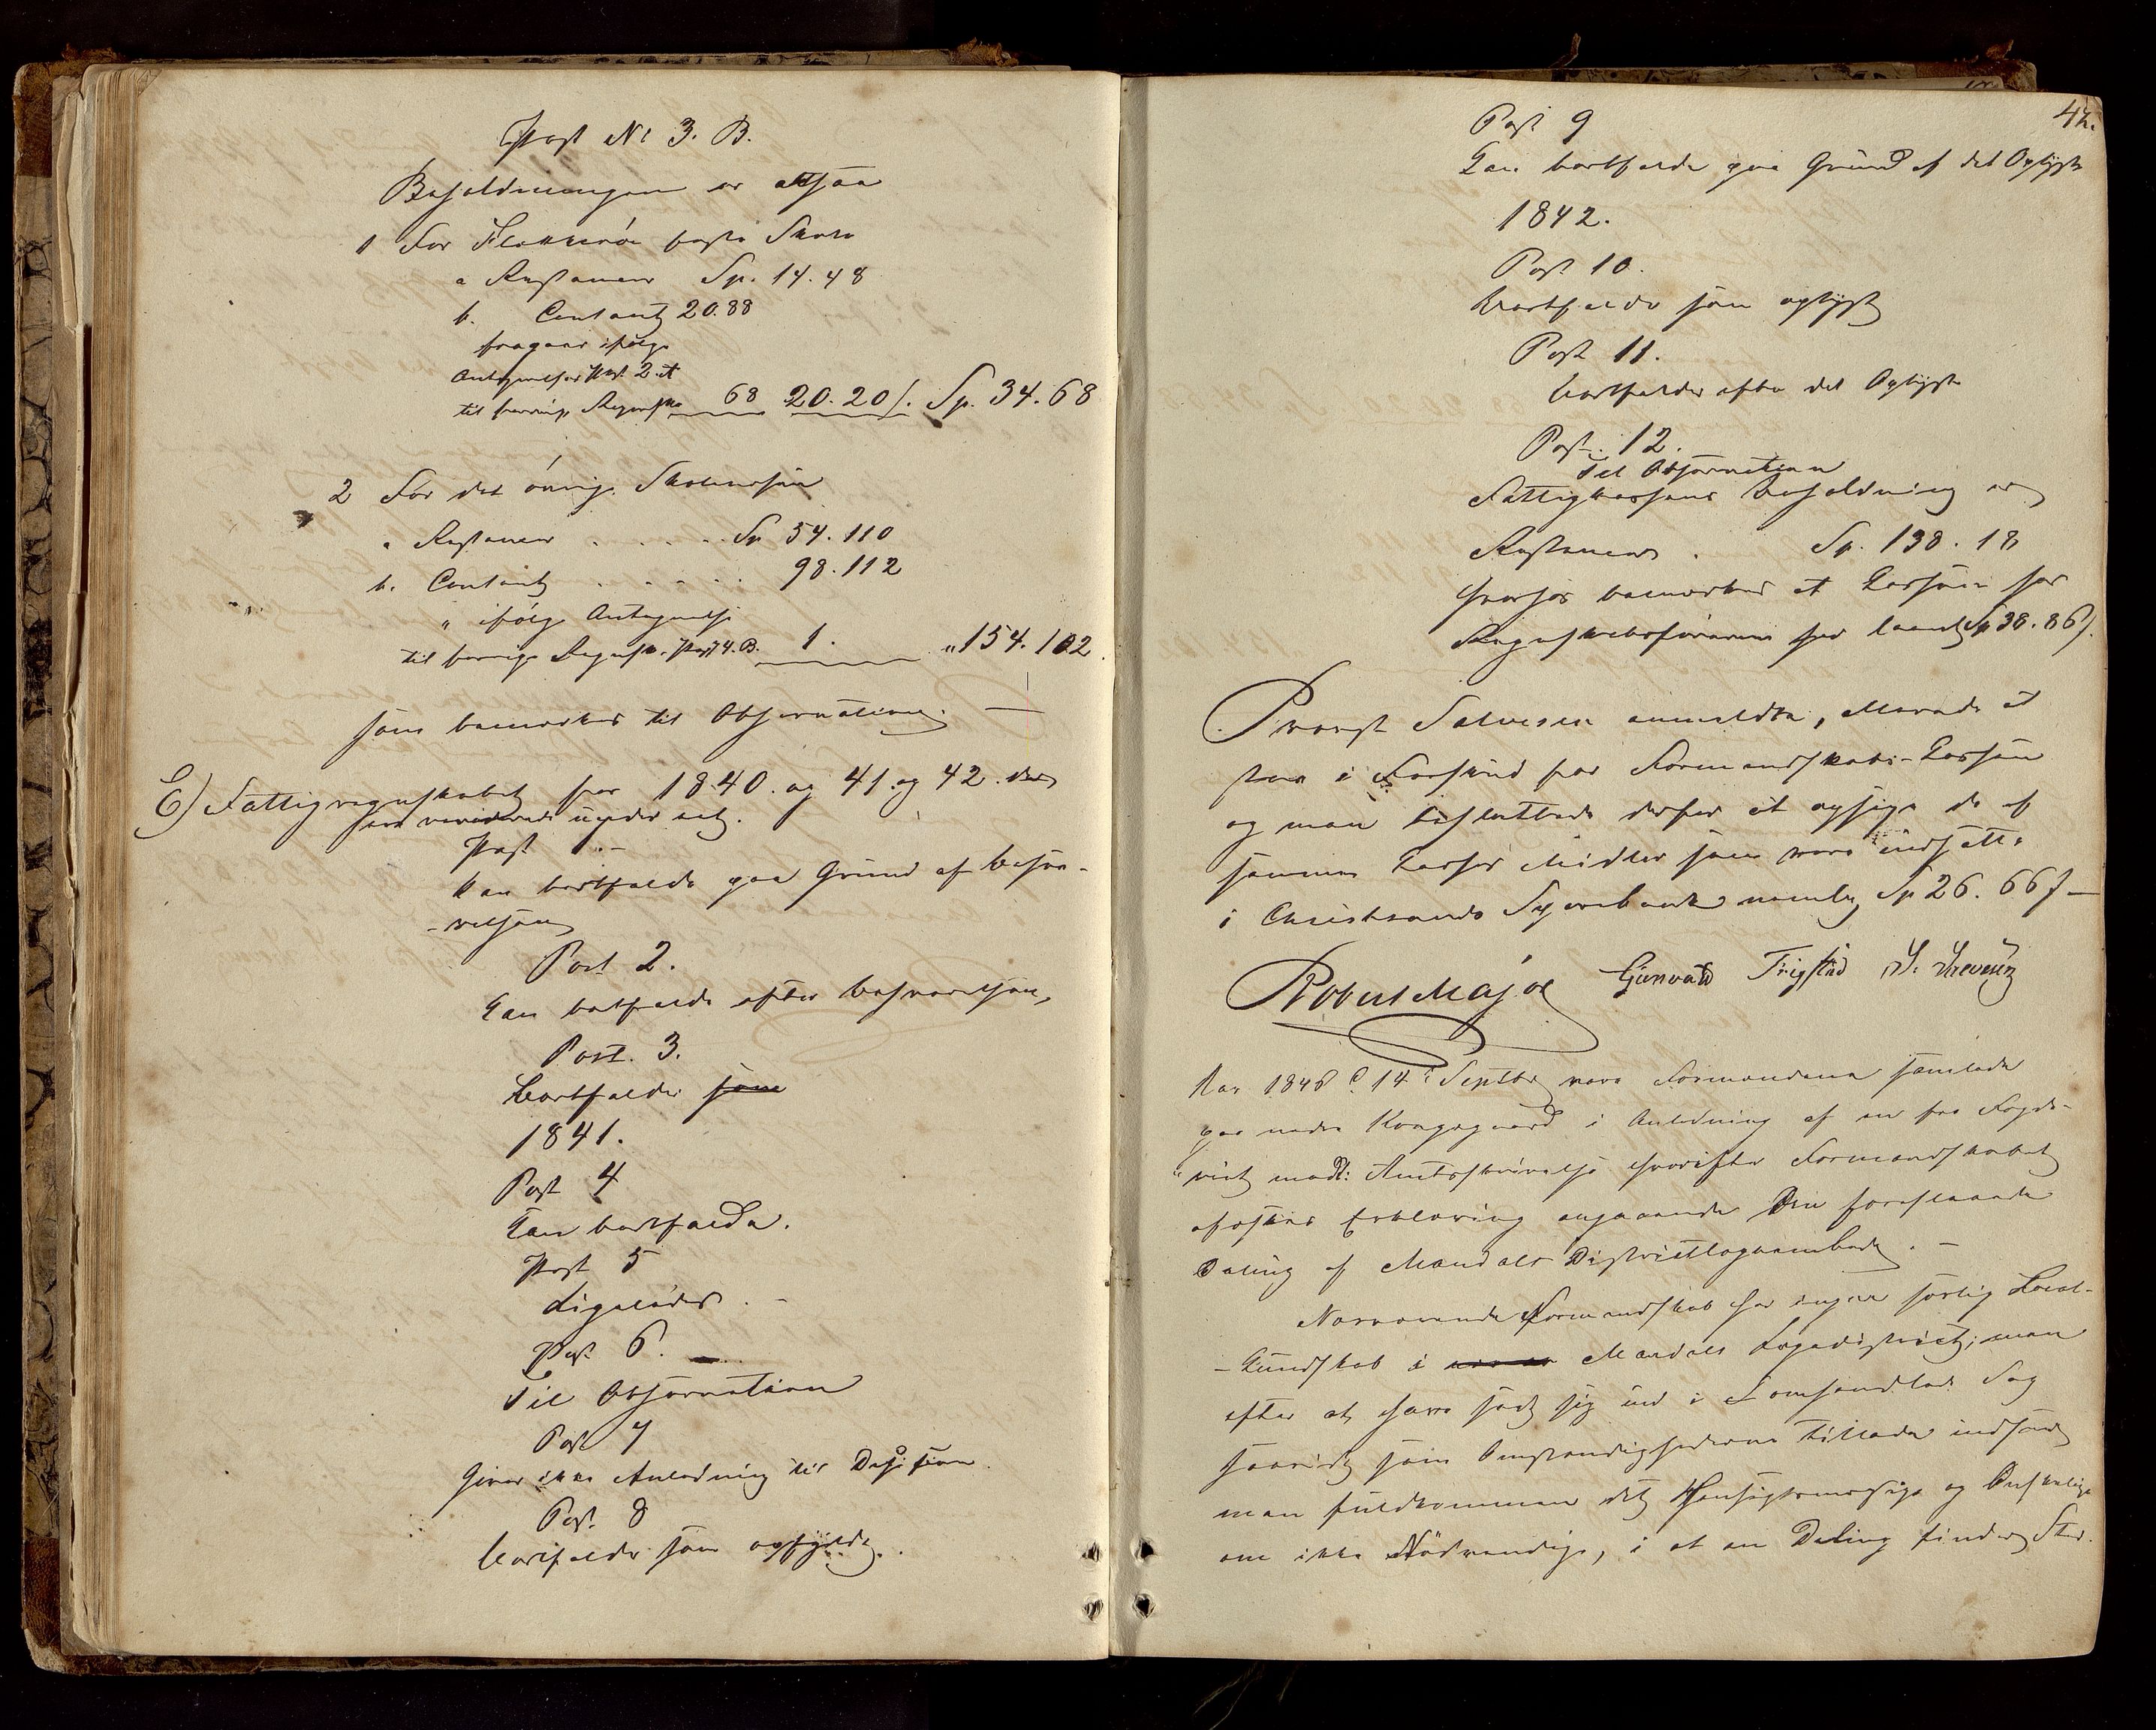 Post No 3. B.
Beholdningen er altsaa
1 For Flekkerøe faste Skole
a Restancer Sp. 14. 48
b. Contant 20. 88
fragaar ifølge
Antegnelses Post 2. A
til forrige Regnskab 68 20. 20 /. Sp. 34. 68
2 For det øvrige Skolevæsen
a Restancer . . . . . Sp 54. 110
b. Contant . . . . . 98. 112
" ifølge Antegnelse
til forrige Regnsk. Post 4. B. 1. " 154. 102.
som bemærkes til Observation. —
C) Fattigregnskabet for 1840. og 41. og 42. der
ere reviderede under eet.
Post 1. –
kan bortfalde paa Grund af Besva-
-relsen
Post 2.
Kan bortfalde efter Besvarelsen,
Post. 3.
Bortfalder som
1841.
Post 4
Kan bortfalde.
Post 5
Ligeledes. –
Post 6.
Til Observation
Post 7
Giver ikke Anledning til Desision.
Post. 8
Bortfalder som opfyldt.
42.
Post 9
Kan bortfalde paa Grund af det Oplyste
1842.
Post 10.
Bortfalder som oplyst
Post 11.
bortfalder efter det Oplyste
Post. 12.
Til Observation
Fattigkassens Beholdning er
Restancer . Sp. 138. 18
hvorhos bemærkes at Kassen har
Regnskabsføreren har laant Sp 38. 86 /.
Provst Salvesen anmeldte, Morade at
staa i Forskud for Formandskabs-Kassen
og man besluttede derfor at opsige de af
sammes Kasses Midler som vare indsatte
i Christiansands Sparebank nemlig Sp 26. 66 /–
Robert Major Gunvald Trigstad
Aar 1846 d. 14de Septbr vare Formændene samlede
paa nedre Kongsgaard i Anledning af en fra Fogde-
riet modt: Amtsskrivelse hvorefter Formandskabet
afæskes Erklæring angaaende den foreslaaede
Deling af Mandals Districtslægeembede. –
Nærværende Formandskab har ingen særlig Local-
-kundskab i Mandals Lægedistrict; men
efter at have sadt sig ind i Sag
saavidt som Omstændighederne tillade indseer
man fuldkommen det Hensigtsmæssige og Ønskelige
om ikke Nødvendige, i at en Deling finder Sted.